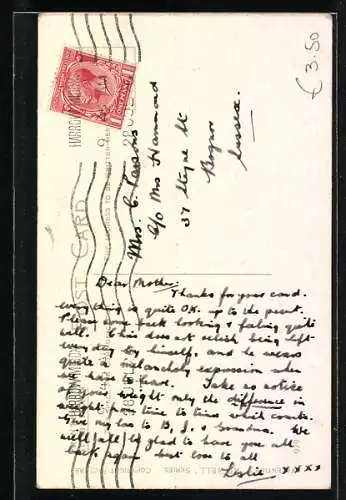 € 3.50
HARROW
ONE PENNY
POST CARD
Mrs. C. Parsons
C/o Mrs Hammond
37 Steyne St
Bognor
Sussex.
Dear Mother,
Thanks for your card.
everything is quite O.K. up to the present.
Please come back looking & feeling quite
well. Chris does not relish being left
every day by himself, and he wears
quite a melancholy expression when
we have to leave. Take no notice
of your weight only the difference in
weight from time to time which counts.
Give my love to B, J, & Grandma. We
will all be glad to have you all
back again. best love to all
Leslie xxxx